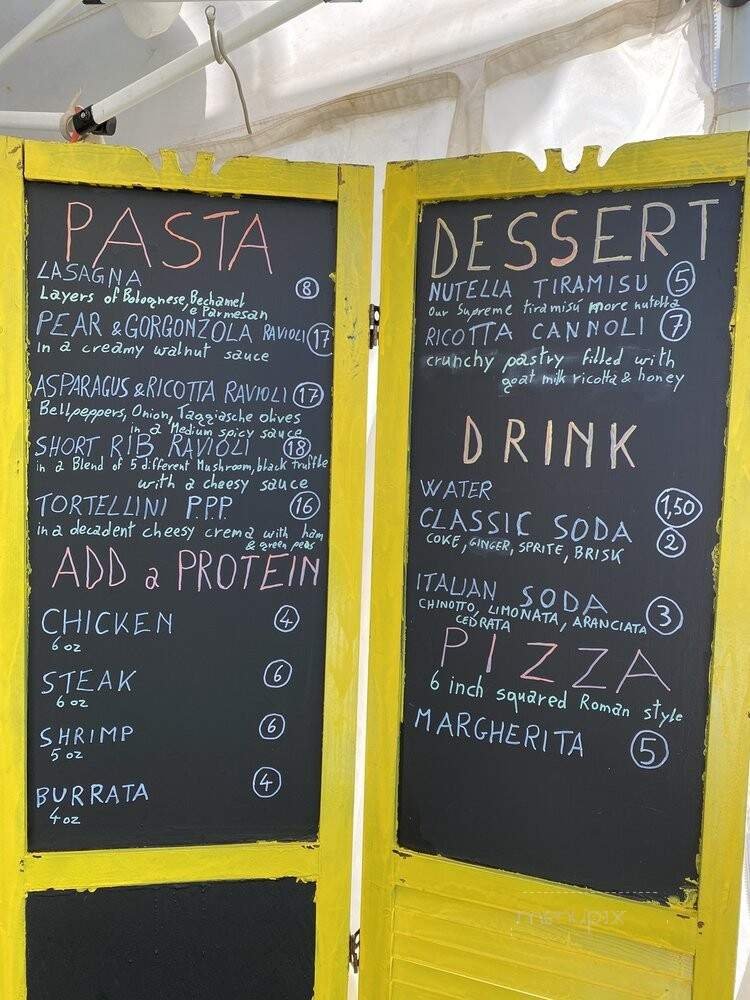 PASTA
LASAGNA 8
Layers of Bolognese, Bechamel
e Parmesan
PEAR & GORGONZOLA RAVIOLI 17
in a creamy walnut sauce
ASPARAGUS & RICOTTA RAVIOLI 17
Bellpeppers, Onion, Taggiasche olives
in a Medium spicy sauce
SHORT RIB RAVIOLI 18
in a Blend of 5 different Mushroom, black truffle
with a cheesy sauce
TORTELLINI P.P.P. 16
in a decadent cheesy crema with ham
& green peas
ADD a PROTEIN
CHICKEN 4
6 oz
STEAK 6
6 oz
SHRIMP 6
5 oz
BURRATA 4
4 oz
DESSERT
NUTELLA TIRAMISU 5
Our Supreme tiramisú more nutella
RICOTTA CANNOLI 7
crunchy pastry filled with
goat milk ricotta & honey
DRINK
WATER 1,50
CLASSIC SODA 2
COKE, GINGER, SPRITE, BRISK
ITALIAN SODA 3
CHINOTTO, LIMONATA, ARANCIATA
CEDRATA
PIZZA
6 inch squared Roman style
MARGHERITA 5
menupix